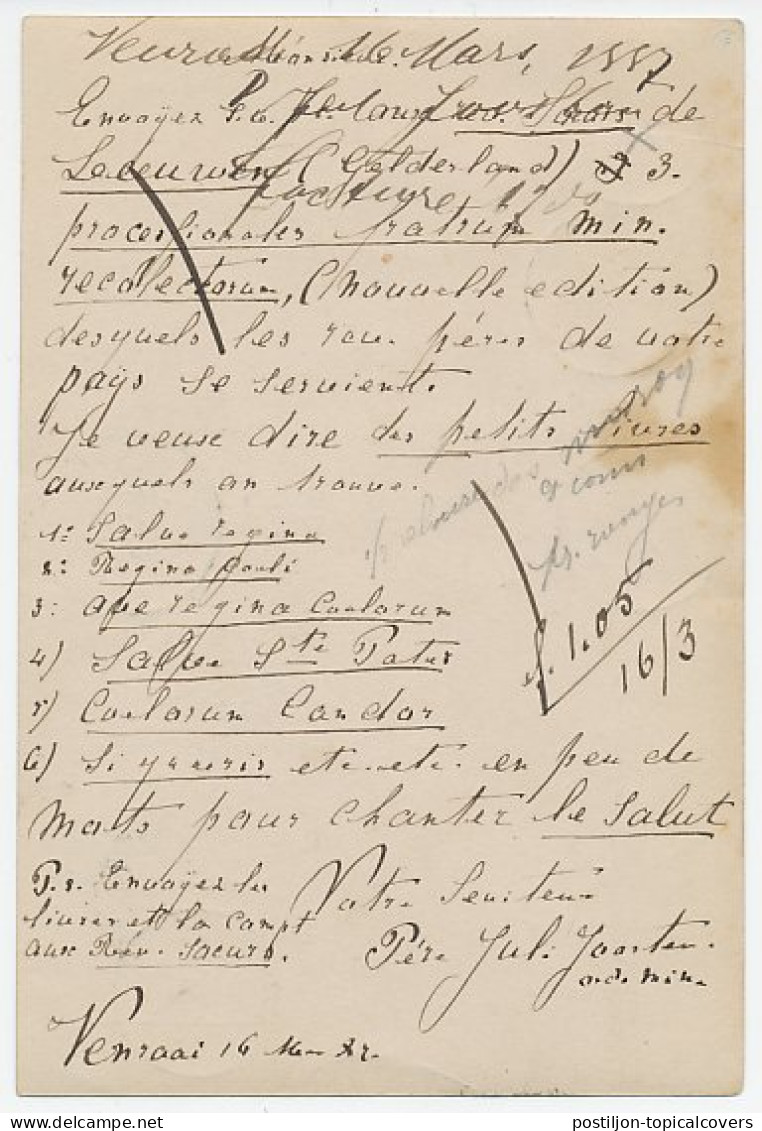 Mars, 1887
Envoyez s.v. Rev. Soeurs de
Leeuwen (Gelderland) 3.
facture
processionales fratrum min.
recolectorum, (nouvelle edition)
desquels les rev. péres de votre
pays se servient.
Je veux dire des petits livres
auxquels on trouve.
1º Salve regina
2º Regina Coeli
3: ave regina Coelorum
4) Salve Ste Pater
5) Coelorum Candor
6) Si quaeris etc. etc. en peu de
mots pour chanter le Salut
f. 1.05
16/3
P.s. Envoyez les
livres et la compt
aux Rev. Soeurs.
Votre Serviteur
Pére Jul. Joosten
ord. min.
Venraai 16
postiljon-topicalcovers